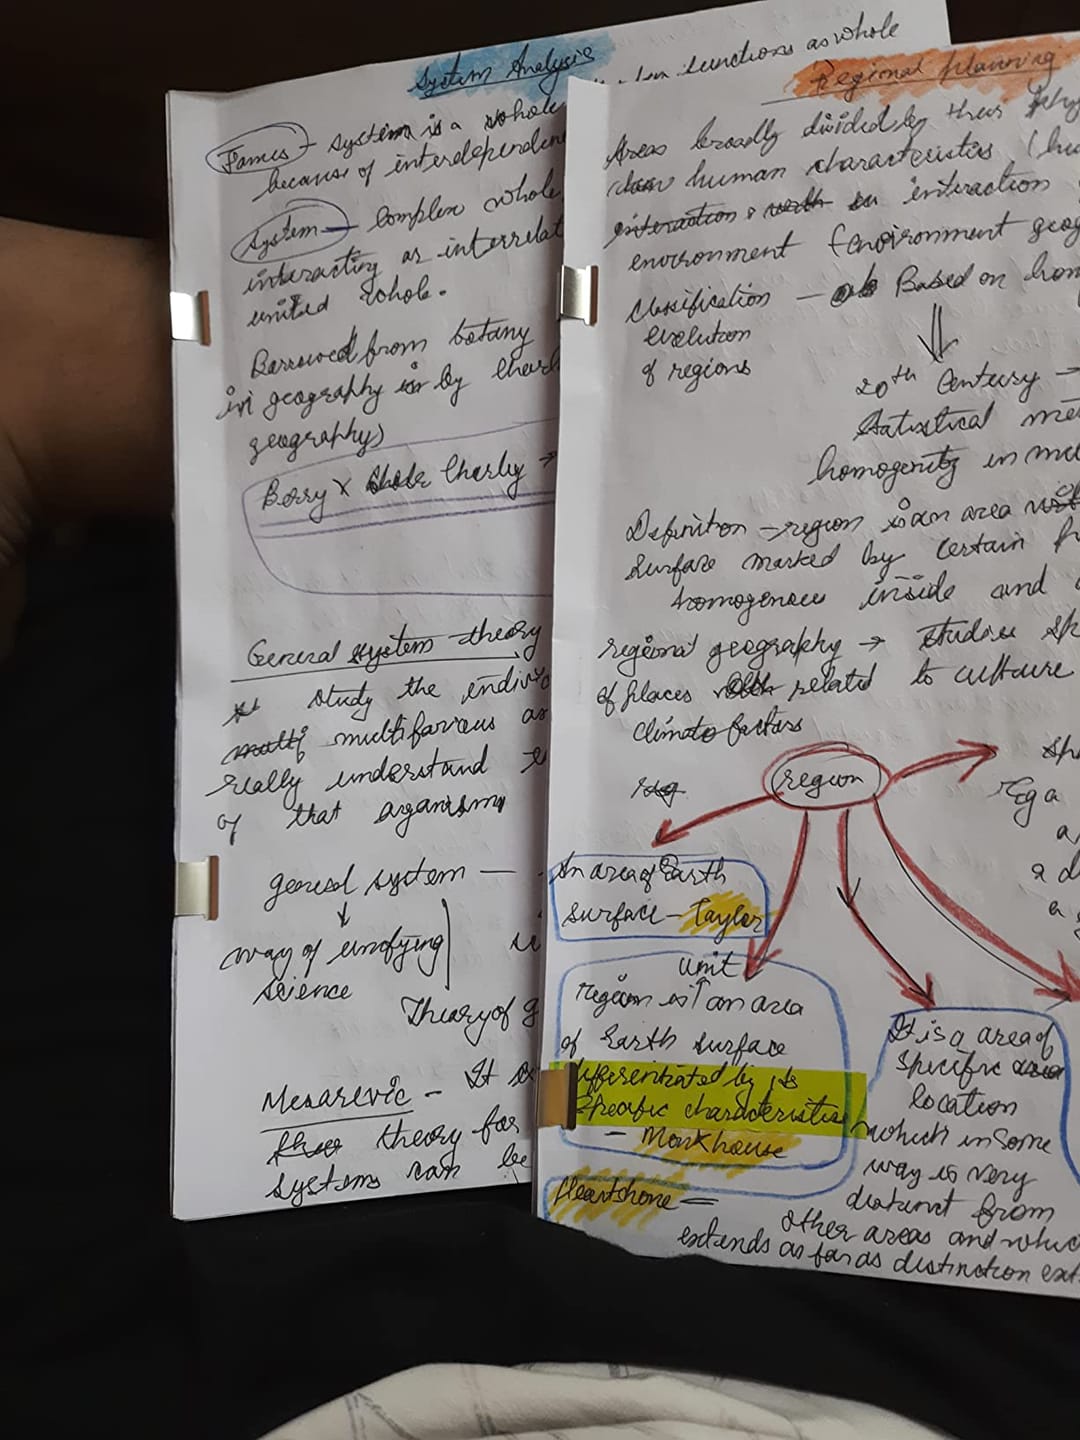 System Analysis
functions as whole
James - system is a whole
because of interdependen
System - Complex whole
interacting as interrelat
united whole.
Barrowed from botany
in geography by Charl
geography)
Berry X Charley →
General system theory
study the indivi
multifarious as
really understand
of that organism
general system —
way of unifying
science
Theory of g
Mesarevic - It
theory for
systems can be
Regional planning
Areas broadly divided by their phy
human characteristics (hu
interaction with in interaction
environment (environment geog
Classification - Based on hom
evolution
of regions
20th Century -
Statistical met
homogenity in
Definition - region is an area
Surface marked by certain
homogeneous inside and
regional geography → studies sp
of places related to culture
climate factors
region
Reg a
a d
An area of Earth
surface - Taylor
unit
region is ↑ an area
of Earth surface
differentiated by its
specific characteristics
- Monkhouse
It is a area of
specific
location
which in some
way is very
distinct from
other areas and whic
extends as far as distinction ext
Heartshone =